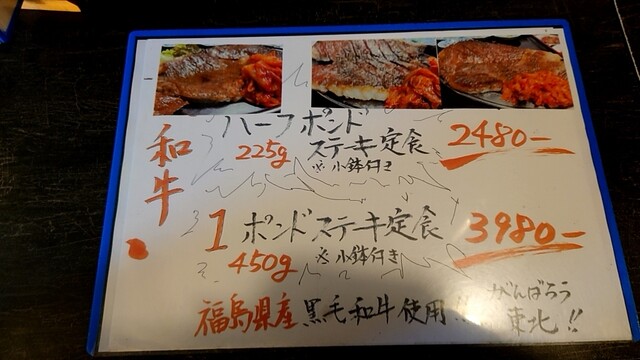 和牛
ハーフポンド
225g ステーキ定食 2480-
※小鉢付き
1ポンドステーキ定食 3980-
450g ※小鉢付き
福島県産黒毛和牛使用!! がんばろう
東北!!